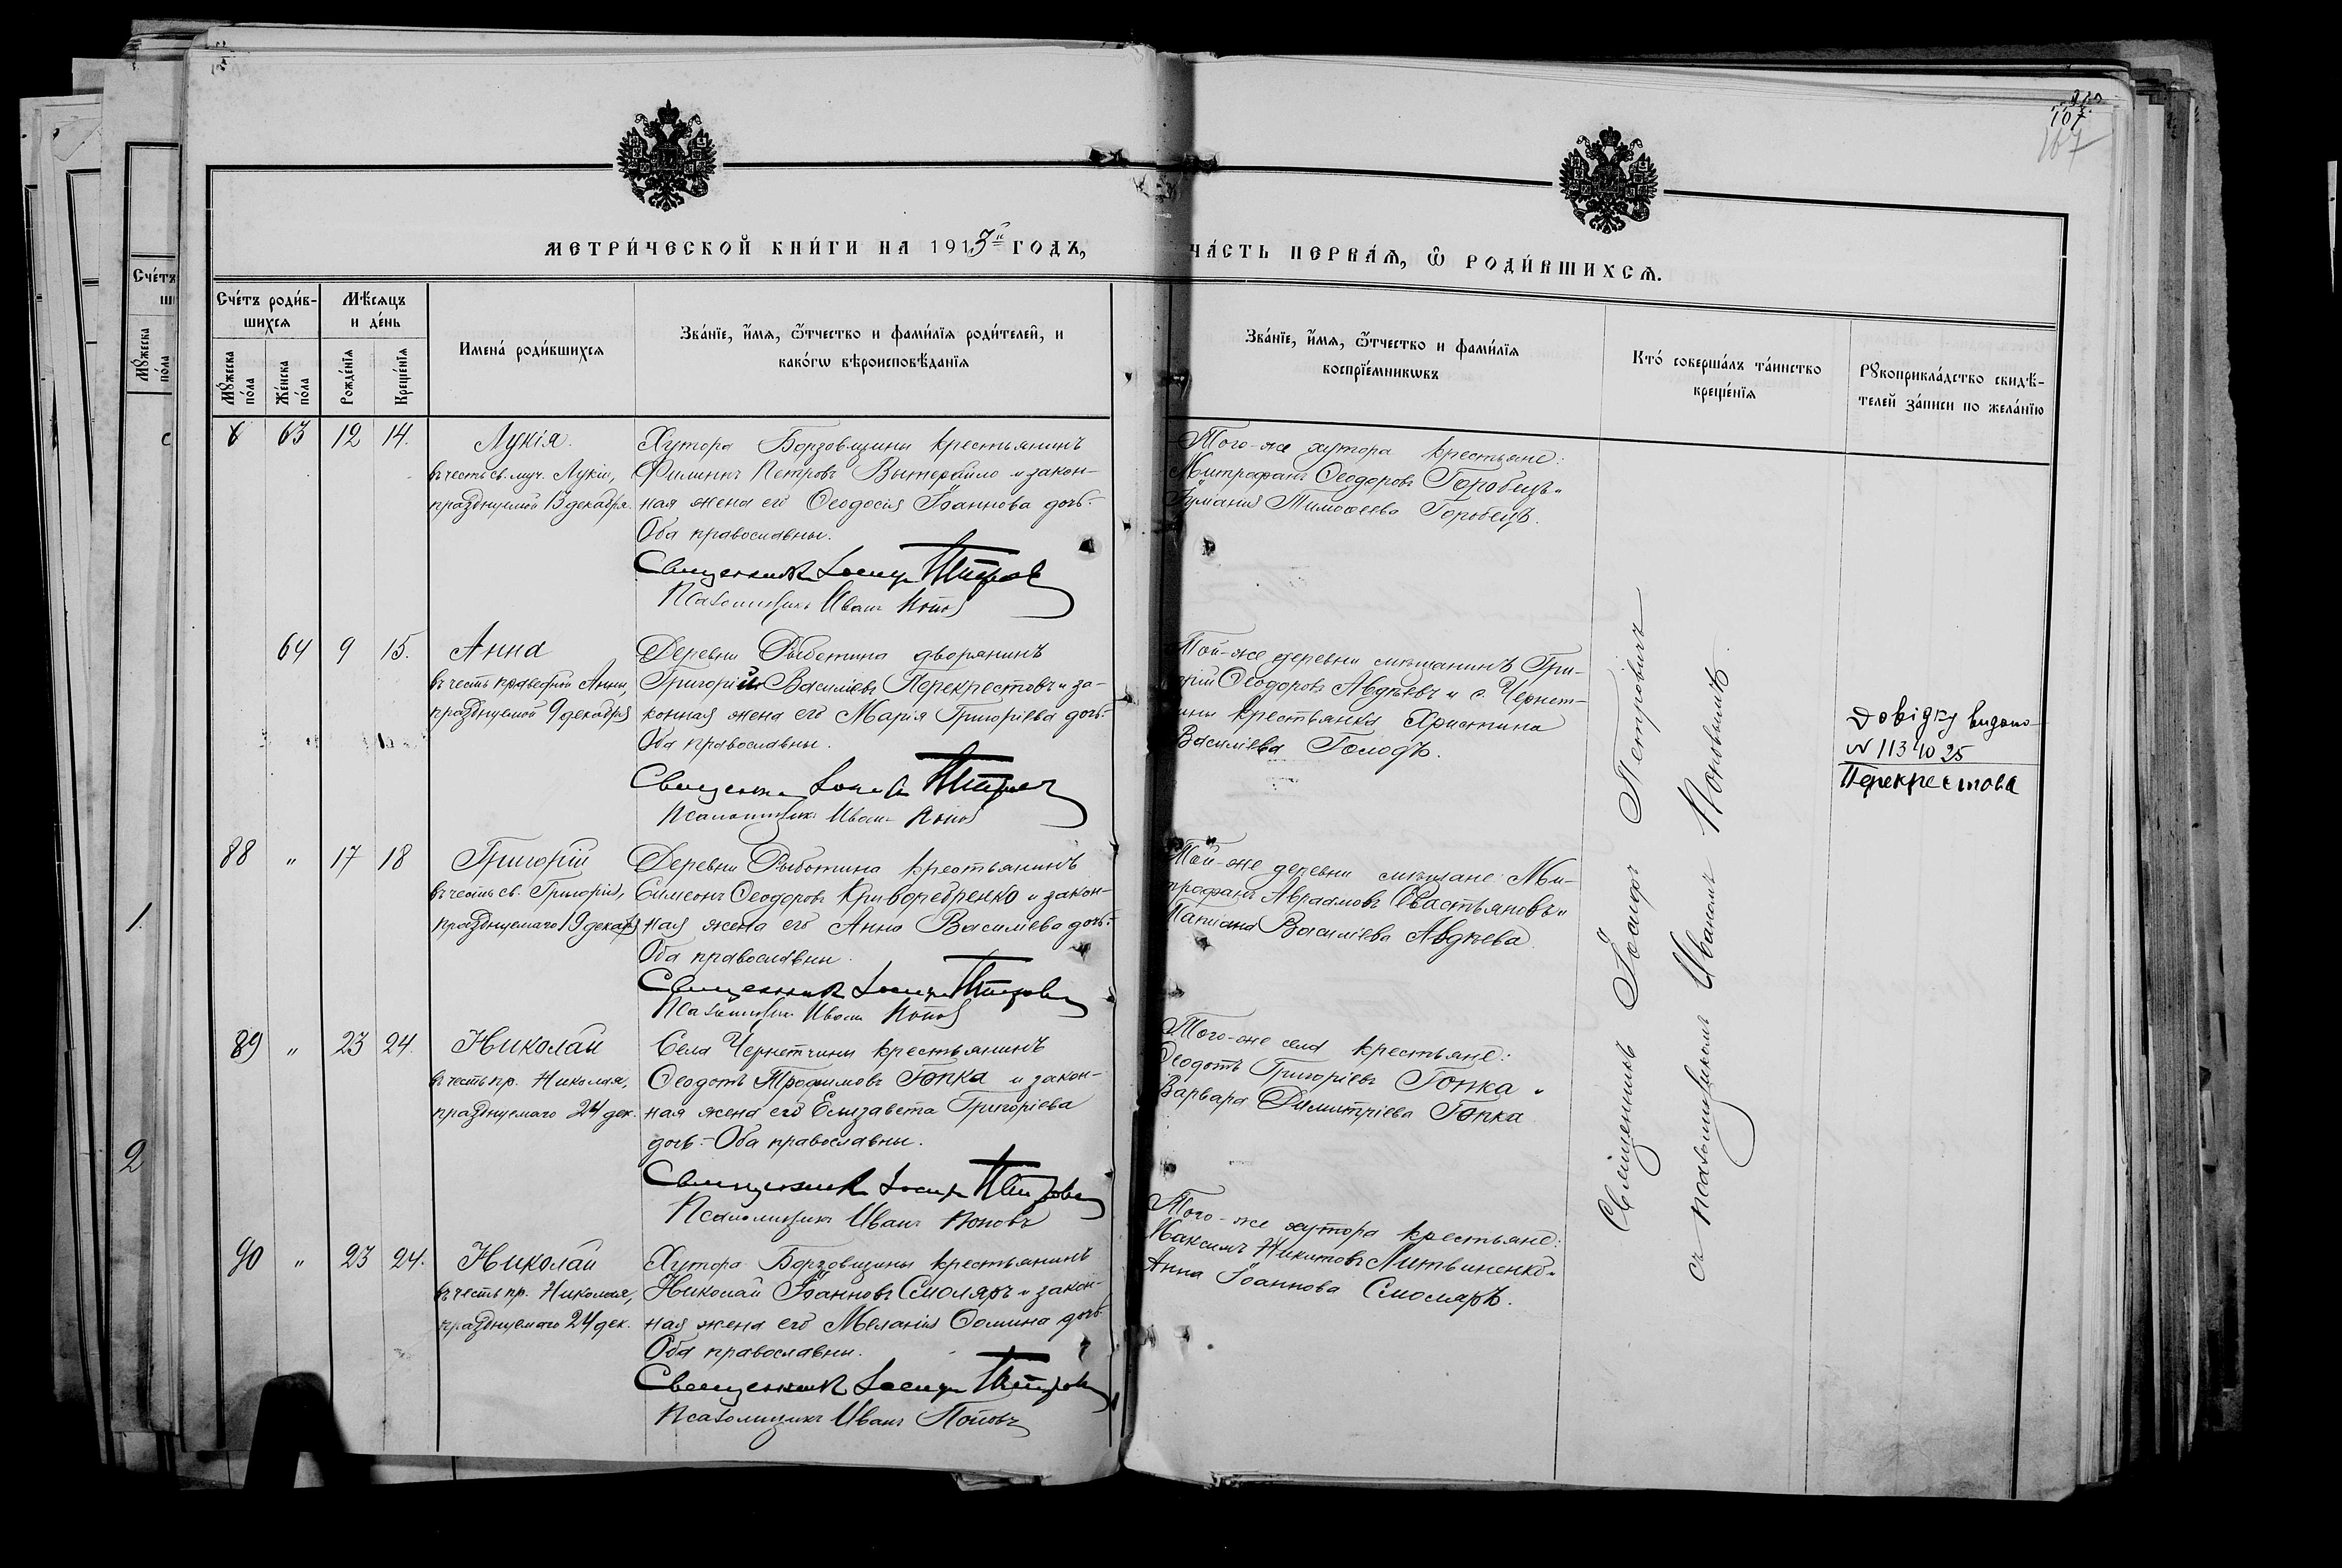 167
МЕТРИ́ЧЕСКОЙ КНИ́ГИ НА 1913й ГОДЪ,
ЧА́СТЬ ПЕРВАЯ, Ѡ РОДИ́ВШИХСЯ.
Сче́тъ роди́в-
шихся
Мѣ́сяцъ
и де́нь
Имена́ роди́вшихся
Зва́нїе, и҆́мя, ѻ҆́тчество и фами́лїя роди́телей, и
како́гѡ вѣроисповѣ́данїя
Зва́нїе, и҆́мя, ѻ҆́тчество и фами́лїя
воспрїе́мникѡвъ
Кто́ соверша́лъ та́инство
креще́нїя
Рꙋкоприкла́дство свидѣ́-
телей за́писи по жела́нїю
Мꙋ́жеска
по́ла
Же́нска
по́ла
Рожде́нїя
Креще́нїя
63 12 14. Лукія.
въ честь св. муч. Лукіи,
празднуемой 13 декабря.
Хутора Борзовщины крестьянинъ
Филиппъ Петровъ и закон-
ная жена его Ѳеодосія Іоаннова дочь.
Оба православны.
Священникъ Іосифъ Петровъ
Псаломщикъ Иванъ Поповъ
Того-же хутора крестьяне:
Митрофанъ Ѳеодоровъ Горобецъ и
Тимоѳеева Горобецъ.
64 9 15. Анна
въ честь праведной Анны,
празднуемой 9 декабря
Деревни Рыботина дворянинъ
Григорій Васильевъ Перекрестовъ и за-
конная жена его Марія Григоріева дочь.
Оба православны.
Священникъ Іосифъ Петровъ
Псаломщикъ Иванъ Поповъ
Той-же деревни мѣщанинъ Гри-
горій Ѳеодоровъ Авдѣевъ и с. Чернет-
чины крестьянка Христина
Василіева Голодъ.
Довідку видано
N 113 40 25
Перекрестова
88 " 17 18 Григорій
въ честь св. Григорія,
празднуемаго 19 декаб.
Деревни Рыботина крестьянинъ
Симеонъ Ѳеодоровъ Криворебренко и закон-
ная жена его Анна Василіева дочь.
Оба православны.
Священникъ Іосифъ Петровъ
Псаломщикъ Иванъ Поповъ
Той-же деревни мѣщане: Ми-
трофанъ Авраамовъ Севастьяновъ и
Василіева Авдѣева.
89 " 23 24. Николай
въ честь пр. Николая,
празднуемаго 24 дек.
Села Чернетчины крестьянинъ
Ѳеодотъ Трофимовъ Гопка и закон-
ная жена его Елизавета Григоріева
дочь.- Оба православны.
Священникъ Іосифъ Петровъ
Псаломщикъ Иванъ Поповъ
Того-же села крестьяне:
Ѳеодотъ Григоріевъ Гопка и
Варвара Димитріева Гопка
90 " 23 24. Николай
въ честь пр. Николая,
празднуемаго 24 дек.
Хутора Борзовщины крестьянинъ
Николай Іоанновъ Смоляръ и закон-
ная жена его Меланія Ѳомина дочь
Оба православны.
Священникъ Іосифъ Петровъ
Псаломщикъ Иванъ Поповъ
Того-же хутора крестьяне:
Максимъ Никитовъ Литвиненко и
Анна Іоаннова Смоляръ.
Священникъ Іосифъ Петровичъ
съ псаломщикомъ Иваномъ Поповымъ